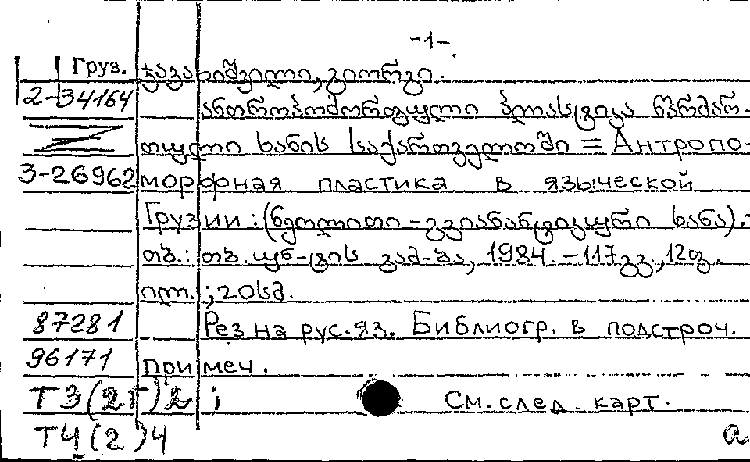 -1-
Груз. ჯავახიშვილი, გიორგი.
2-34164 ანთროპომორფული პლასტიკა წარმარ-
თული ხანის საქართველოში = Антропо-
3-26962 морфная пластика в языческой
Грузии: (ნეოლითი-გვიანანტიკური ხანა).-
თბ.: თბ. უნ-ტის გამ-ბა, 1984. - 117გვ., 12ფ.
ილ.; 20სმ.
87281 Рез на рус. яз. Библиогр. в подстроч.
96171 примеч.
Т3(2Г)2; См. след. карт.
Т4(2)4 а